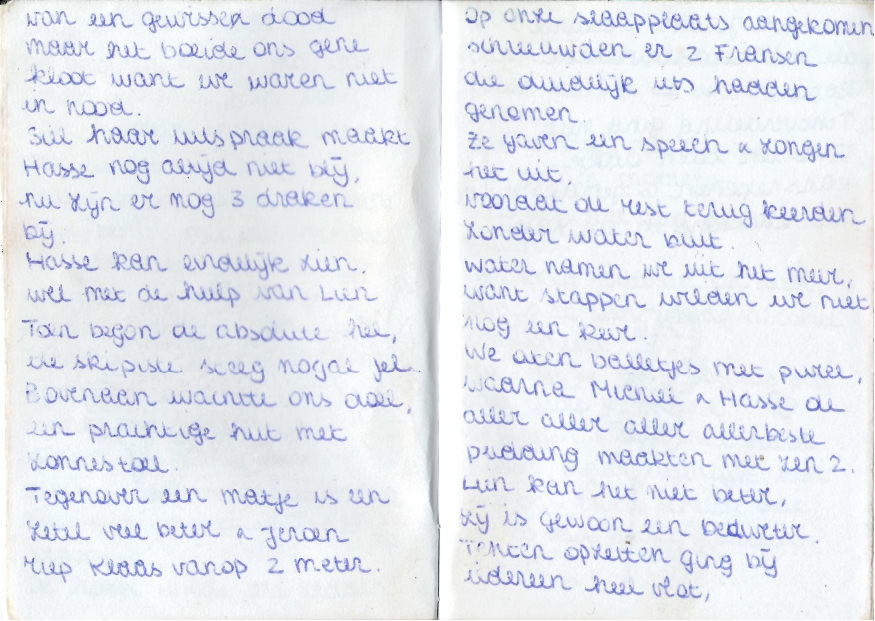 van een gewissen dood
maar het boeide ons gene
kloot want we waren niet
in nood.
Stil haar uitspraak maakt
Hasse nog altijd niet bij,
nu zijn er nog 3 draken
bij.
Hasse kan eindelijk zien.
wel met de hulp van Lien
Toen begon de absolute hel,
de skipiste steeg nogal fel.
Bovenaan wachtte ons doel,
een prachtige hut met
zonnestoel.
Tegenover een matje is een
zetel veel beter & Jeroen
riep Klaas vanop 2 meter.
Op onze slaapplaats aangekomen
schreeuwden er 2 Fransen
die duidelijk iets hadden
genomen.
Ze gaven een speech & zongen
het uit.
voordat de rest terug keerden
zonder water buit.
water namen we uit het meer,
want stappen wilden we niet
nog een keer.
We aten balletjes met puree,
waarna Michiel & Hasse de
aller aller aller allerbeste
pudding maakten met zen 2.
Lien kan het niet beter,
zij is gewoon een bedweter.
Tenten opzetten ging bij
iedereen heel vlot,